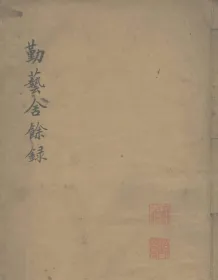 勤藝舍餘録